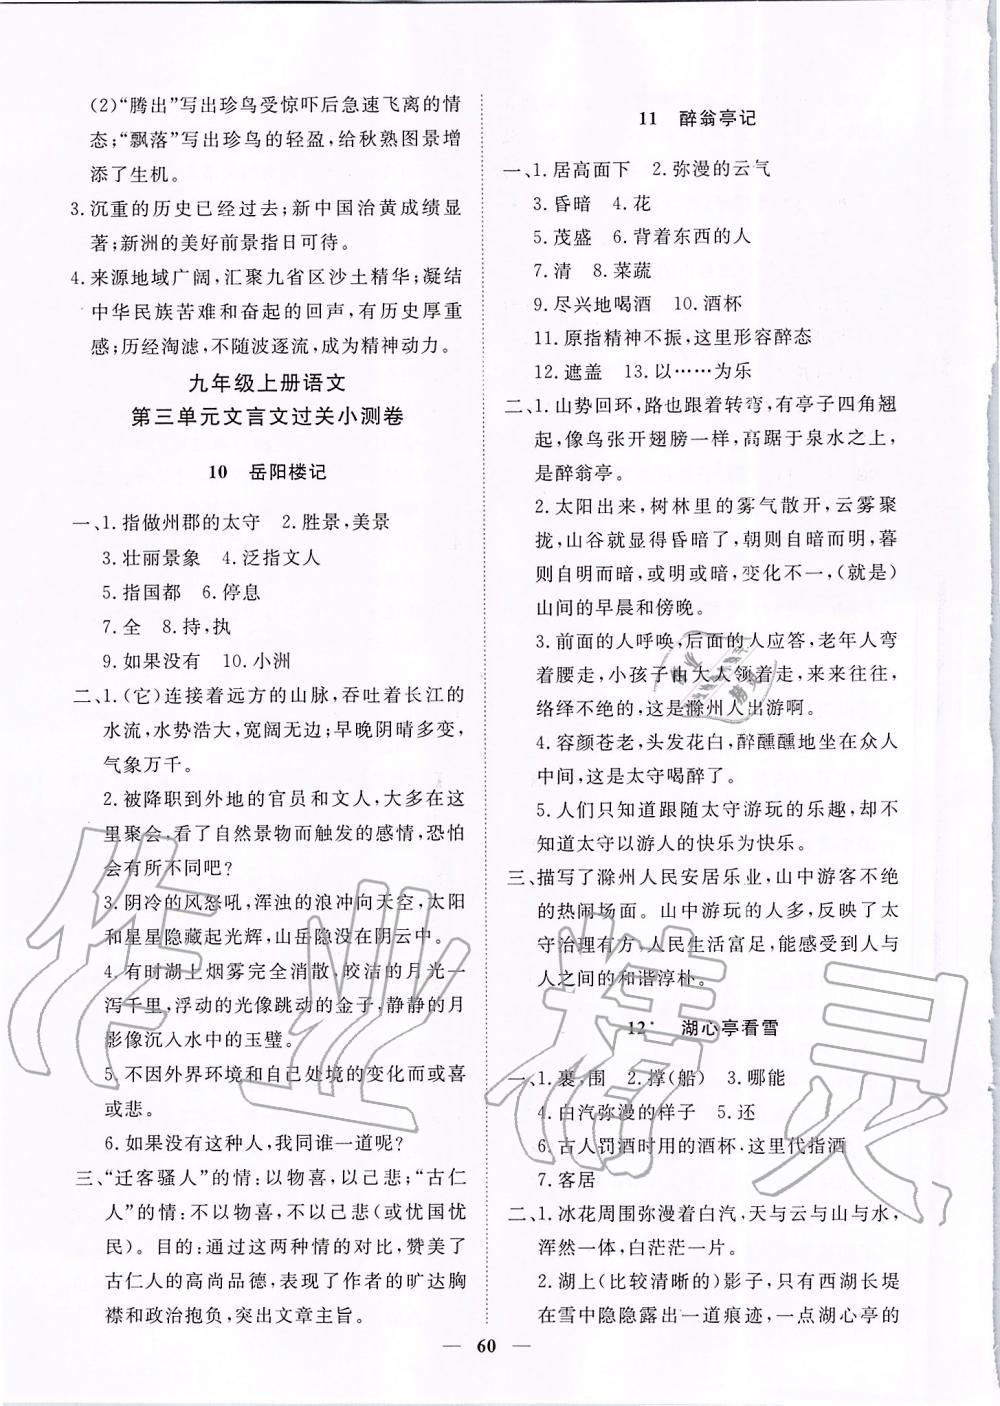 (2)“腾出”写出珍鸟受惊吓后急速飞离的情
态;“飘落”写出珍鸟的轻盈,给秋熟图景增
添了生机。
3.沉重的历史已经过去;新中国治黄成绩显
著;新洲的美好前景指日可待。
4.来源地域广阔,汇聚九省区沙土精华;凝结
中华民族苦难和奋起的回声,有历史厚重
感;历经淘滤,不随波逐流,成为精神动力。
九年级上册语文
第三单元文言文过关小测卷
10 岳阳楼记
一、1.指做州郡的太守 2.胜景,美景
3.壮丽景象 4.泛指文人
5.指国都 6.停息
7.全 8.持,执
9.如果没有 10.小洲
二、1.(它)连接着远方的山脉,吞吐着长江的
水流,水势浩大,宽阔无边;早晚阴晴多变,
气象万千。
2.被降职到外地的官员和文人,大多在这
里聚会,看了自然景物而触发的感情,恐怕
会有所不同吧?
3.阴冷的风怒吼,浑浊的浪冲向天空,太阳
和星星隐藏起光辉,山岳隐没在阴云中。
4.有时湖上烟雾完全消散,皎洁的月光一
泻千里,浮动的光像跳动的金子,静静的月
影像沉入水中的玉璧。
5.不因外界环境和自己处境的变化而或喜
或悲。
6.如果没有这种人,我同谁一道呢?
三、“迁客骚人”的情:以物喜,以己悲;“古仁
人”的情:不以物喜,不以己悲(或忧国忧
民)。目的:通过这两种情的对比,赞美了
古仁人的高尚品德,表现了作者的旷达胸
襟和政治抱负,突出文章主旨。
11 醉翁亭记
一、1.居高面下 2.弥漫的云气
3.昏暗 4.花
5.茂盛 6.背着东西的人
7.清 8.菜蔬
9.尽兴地喝酒 10.酒杯
11.原指精神不振,这里形容醉态
12.遮盖 13.以……为乐
二、1.山势回环,路也跟着转弯,有亭子四角翘
起,像鸟张开翅膀一样,高踞于泉水之上,
是醉翁亭。
2.太阳出来,树林里的雾气散开,云雾聚
拢,山谷就显得昏暗了,朝则自暗而明,暮
则自明而暗,或明或暗,变化不一,(就是)
山间的早晨和傍晚。
3.前面的人呼唤,后面的人应答,老年人弯
着腰走,小孩子由大人领着走,来来往往,
络绎不绝的,这是滁州人出游啊。
4.容颜苍老,头发花白,醉醺醺地坐在众人
中间,这是太守喝醉了。
5.人们只知道跟随太守游玩的乐趣,却不
知道太守以游人的快乐为快乐。
三、描写了滁州人民安居乐业,山中游客不绝
的热闹场面。山中游玩的人多,反映了太
守治理有方,人民生活富足,能感受到人与
人之间的和谐淳朴。
12* 湖心亭看雪
一、1.裹,围 2.撑(船) 3.哪能
4.白汽弥漫的样子 5.还
6.古人罚酒时用的酒杯.这里代指酒
7.客居
二、1.冰花周围弥漫着白汽,天与云与山与水,
浑然一体,白茫茫一片。
2.湖上(比较清晰的)影子,只有西湖长堤
在雪中隐隐露出一道痕迹,一点湖心亭的
60
作业精灵